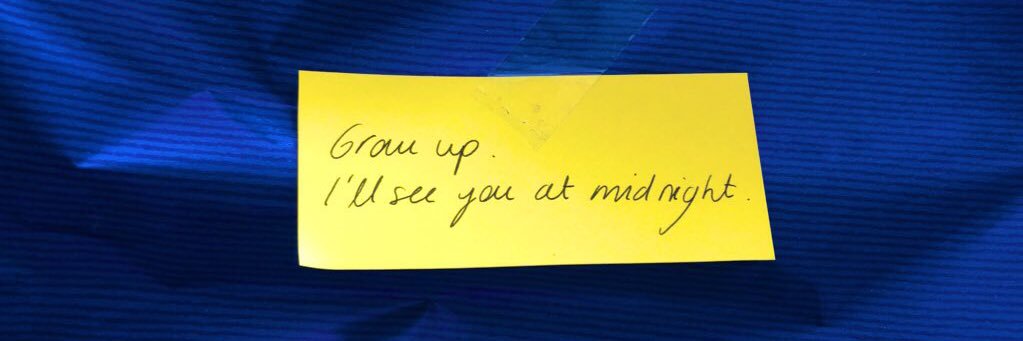 Grow up.
I'll see you at midnight.